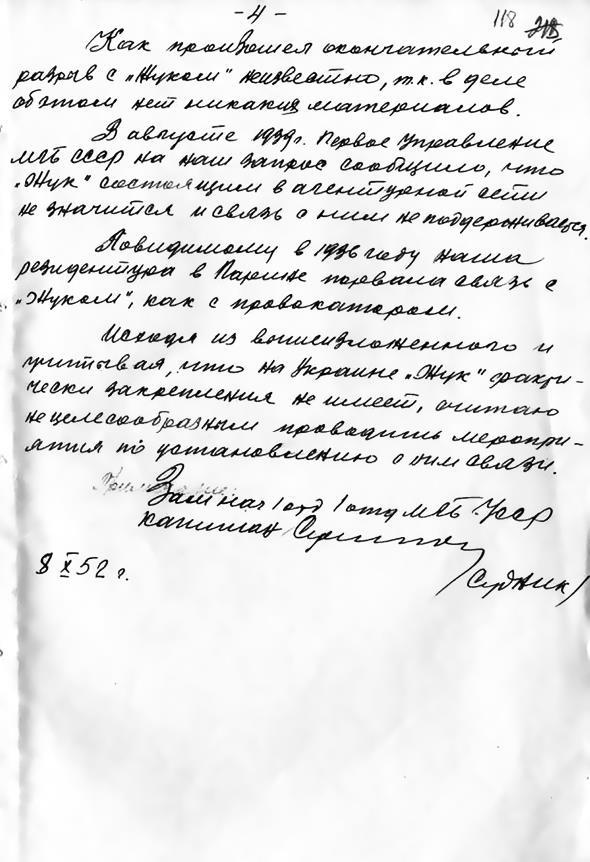 -4-
118
Как произошел окончательный
разрыв с „Жуком" неизвестно, т.к. в деле
об этом нет никаких материалов.
В августе 1939г. Первое Управление
МГБ СССР на наш запрос сообщило, что
„Жук" состоящим в агентурной сети
не значится и связь с ним не поддерживается.
Повидимому в 1936 году наша
резидентура в Париже порвала связь с
„Жуком", как с провокатором.
Исходя из вышеизложенного и
учитывая, что на Украине „Жук" факти-
чески закрепления не имеет, считаю
нецелесообразным проводить меропри-
ятия по установлению с ним связи.
Зам нач 1 отд 1 отд МГБ УССР
капитан
/Судник/
8 X 52 г.